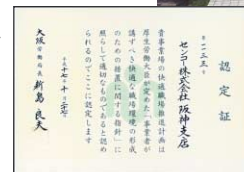 第一一三三号
認定証
センコー株式会社 阪神支店
貴事業場の快適職場推進計画は
厚生労働大臣が定めた「事業者が
講ずべき快適な職場環境の形成
のための措置に関する指針」に
照らして適切なものであると認め
られるのでここに認定します
平成十七年十月二十七日
大阪労働局長 新島良夫